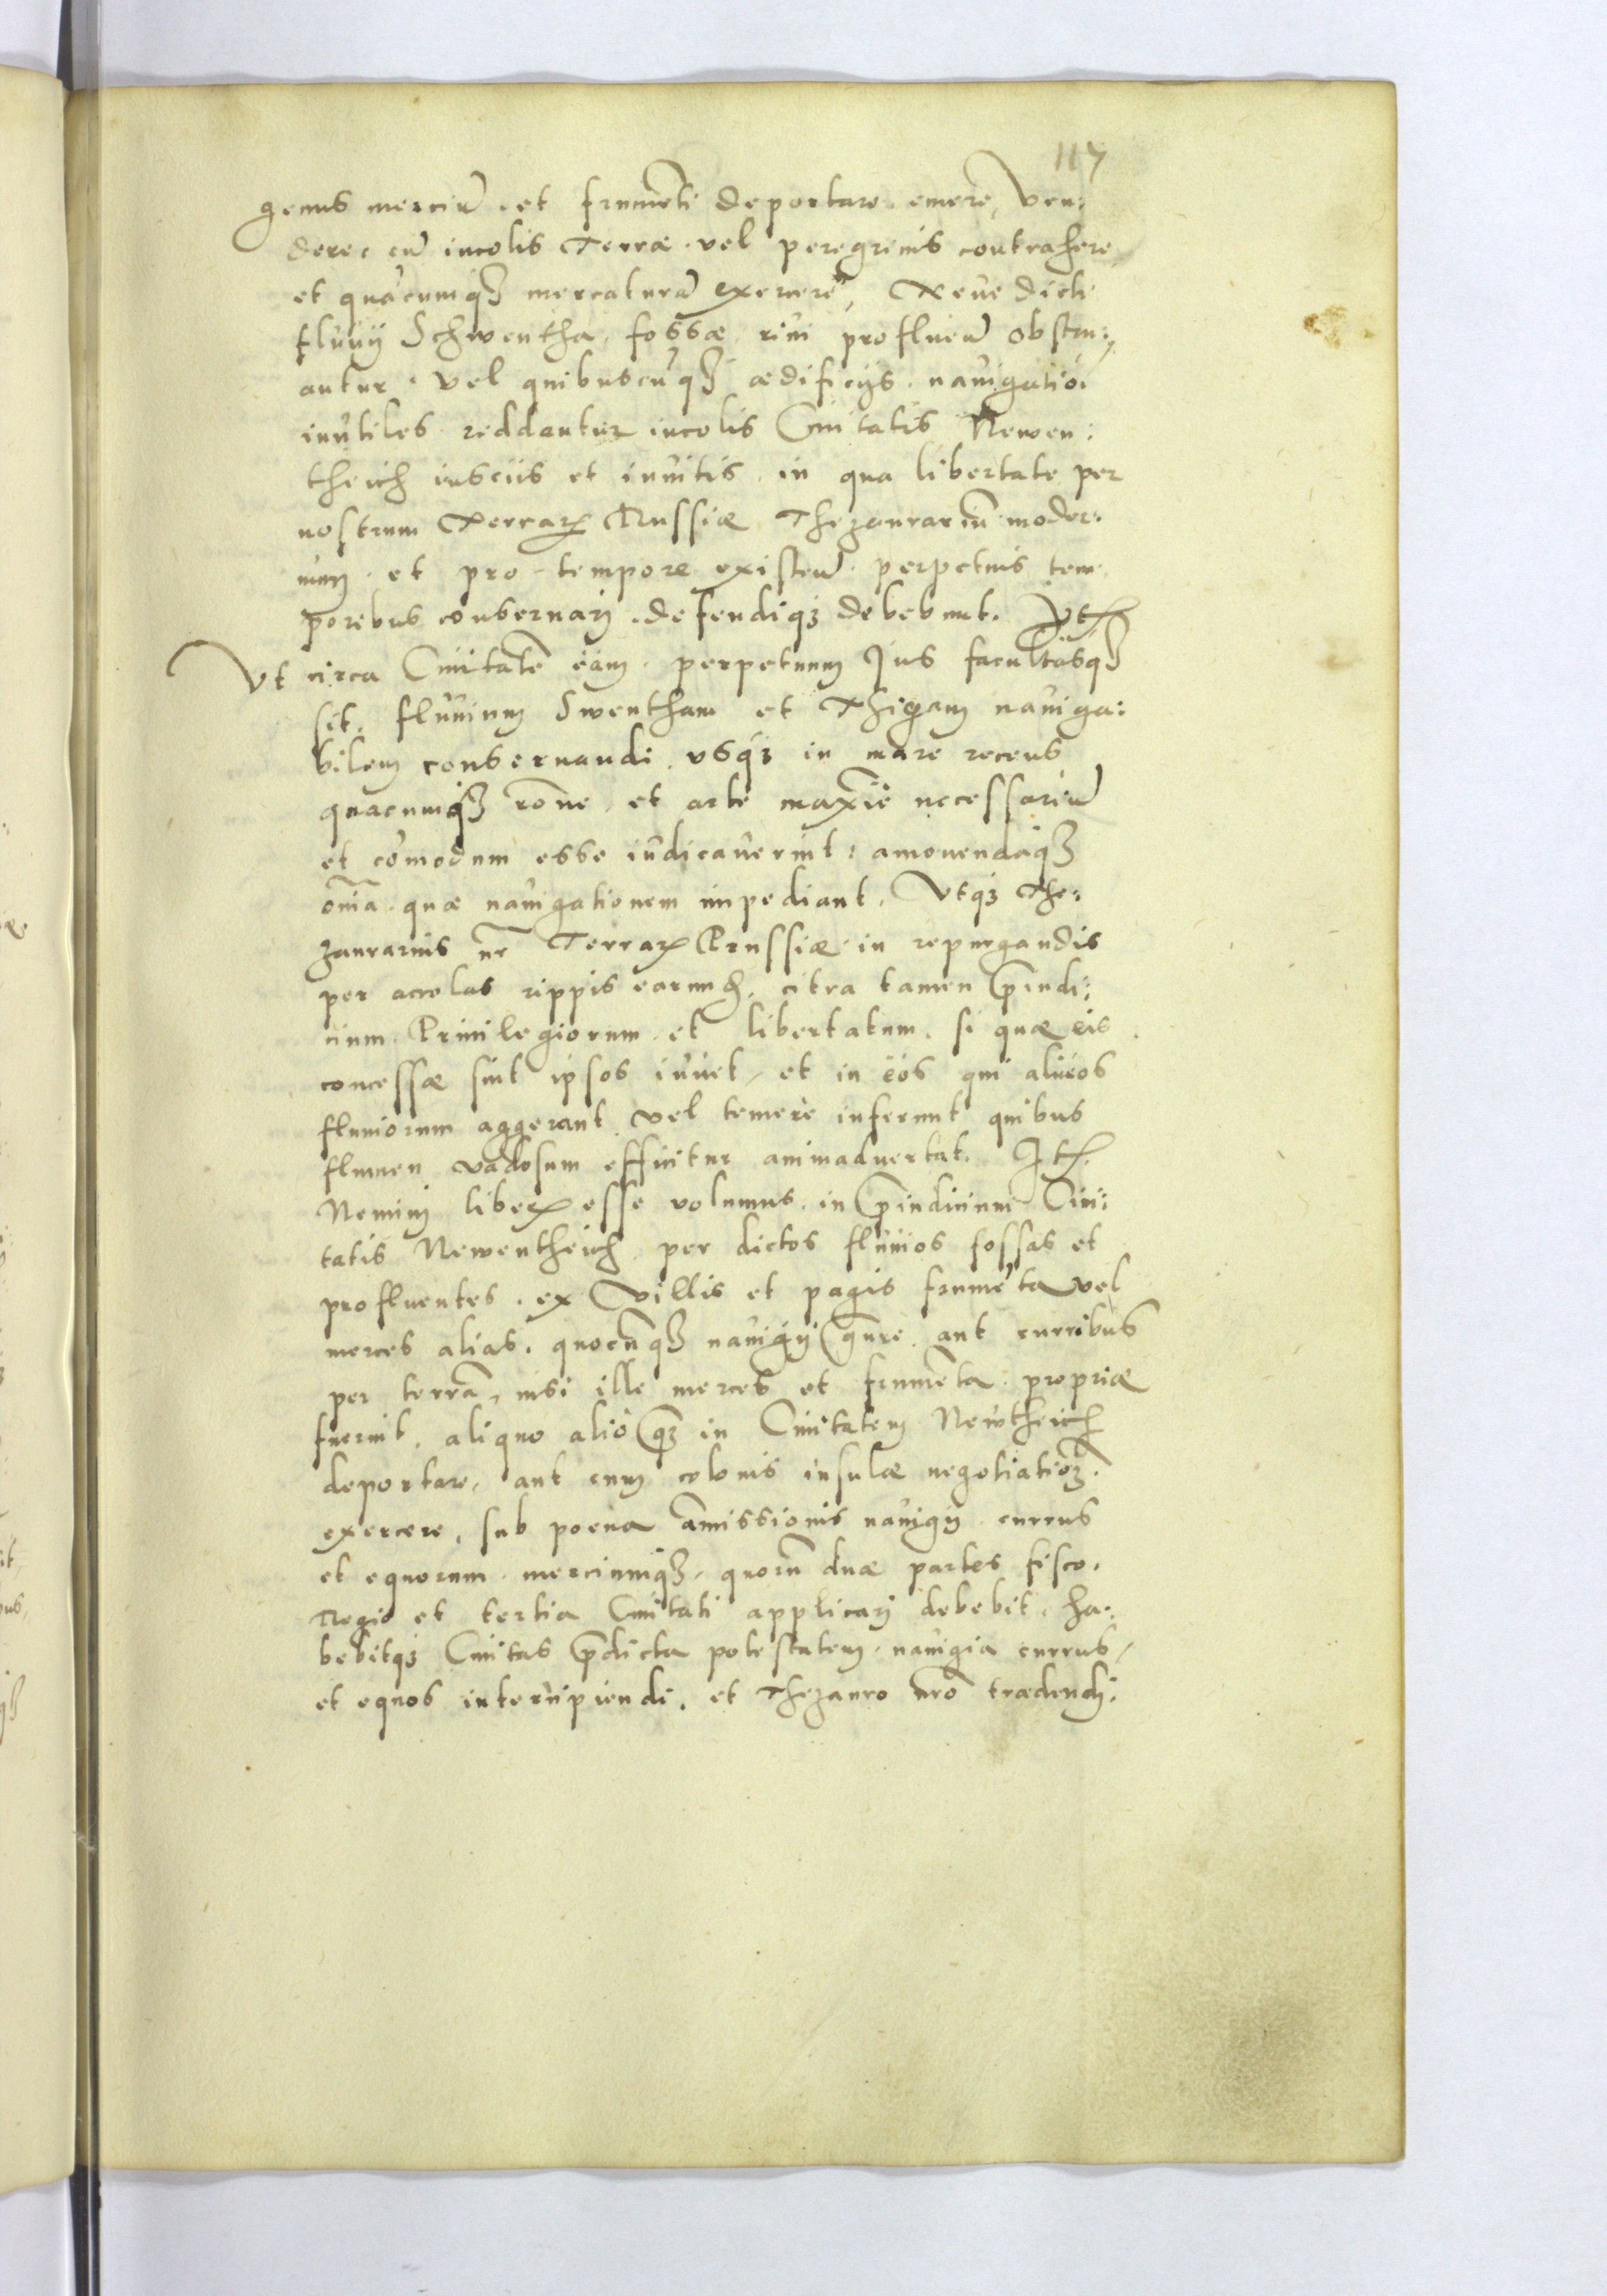 117
genus merciũ et frumẽti deportare emere, Ven:
dere, cũ incolis Terræ vel peregrinis contrahere
et quacumqȝ mercaturã exercere, Neue dicti
fluuij Schwentha, fossæ, riui profluen̄ obstru:
antur, vel quibuscũqȝ ædificijs nauigatio:
inutiles reddantur incolis Ciuitatis Newen:
theich insciis et inuitis, in qua libertate per
nostrum Terraꝝ Prussiæ Thezaurariũ moder:
num et pro tempore existeñ perpetuis tem
poribus conseruari defendiqȝ debebunt. Itē
Vt circa Ciuitatē eam perpetuum Jus facultasqȝ
sit, fluuium Swentham et Thigam nauiga:
bilem conseruandi, vsqȝ in mare recens
quacumqȝ rōne et arte maxīe necessariũ
et cōmodum esse iudicauerint: amouendaqȝ
oīa quæ nauigationem impediant. Vtqȝ The:
zaurarius nr̄ Terraꝝ Prussiæ in repurgandis
per accolas rippis earumd, citra tamen p̄iudi:
cium Priuilegiorum et libertatum, si quæ eis
concessæ sint ipsos iuuet, et in eos qui alueos
fluuiorum aggerant vel temere inferunt quibus
flumen vadosum efficitur animaduertat. Itē
Nemini liberũ esse volumus in p̄iudicium Ciui:
tatis Newentheich per dictos fluuios fossas et
profluentes, ex Villis et pagis frumẽta vel
merces alias, quocũqȝ nauigij gn̄re aut curribus
per terrā, nisi ille merces et frumēta propriæ
fuerint, aliquo alio qȝ in Ciuitatem Newtheich
deportare, aut cum colonis insulæ negotiationē
exercere, sub poena amissionis nauigij currus
et equorum merciumqȝ, quorũ duæ partes fisco
Regio et tertia Ciuitati applicari debebit, ha:
bebitqȝ Ciuitas p̄dicta potestatem nauigia currus,
et equos intercipiendi, et Thezauro nro tradendi.